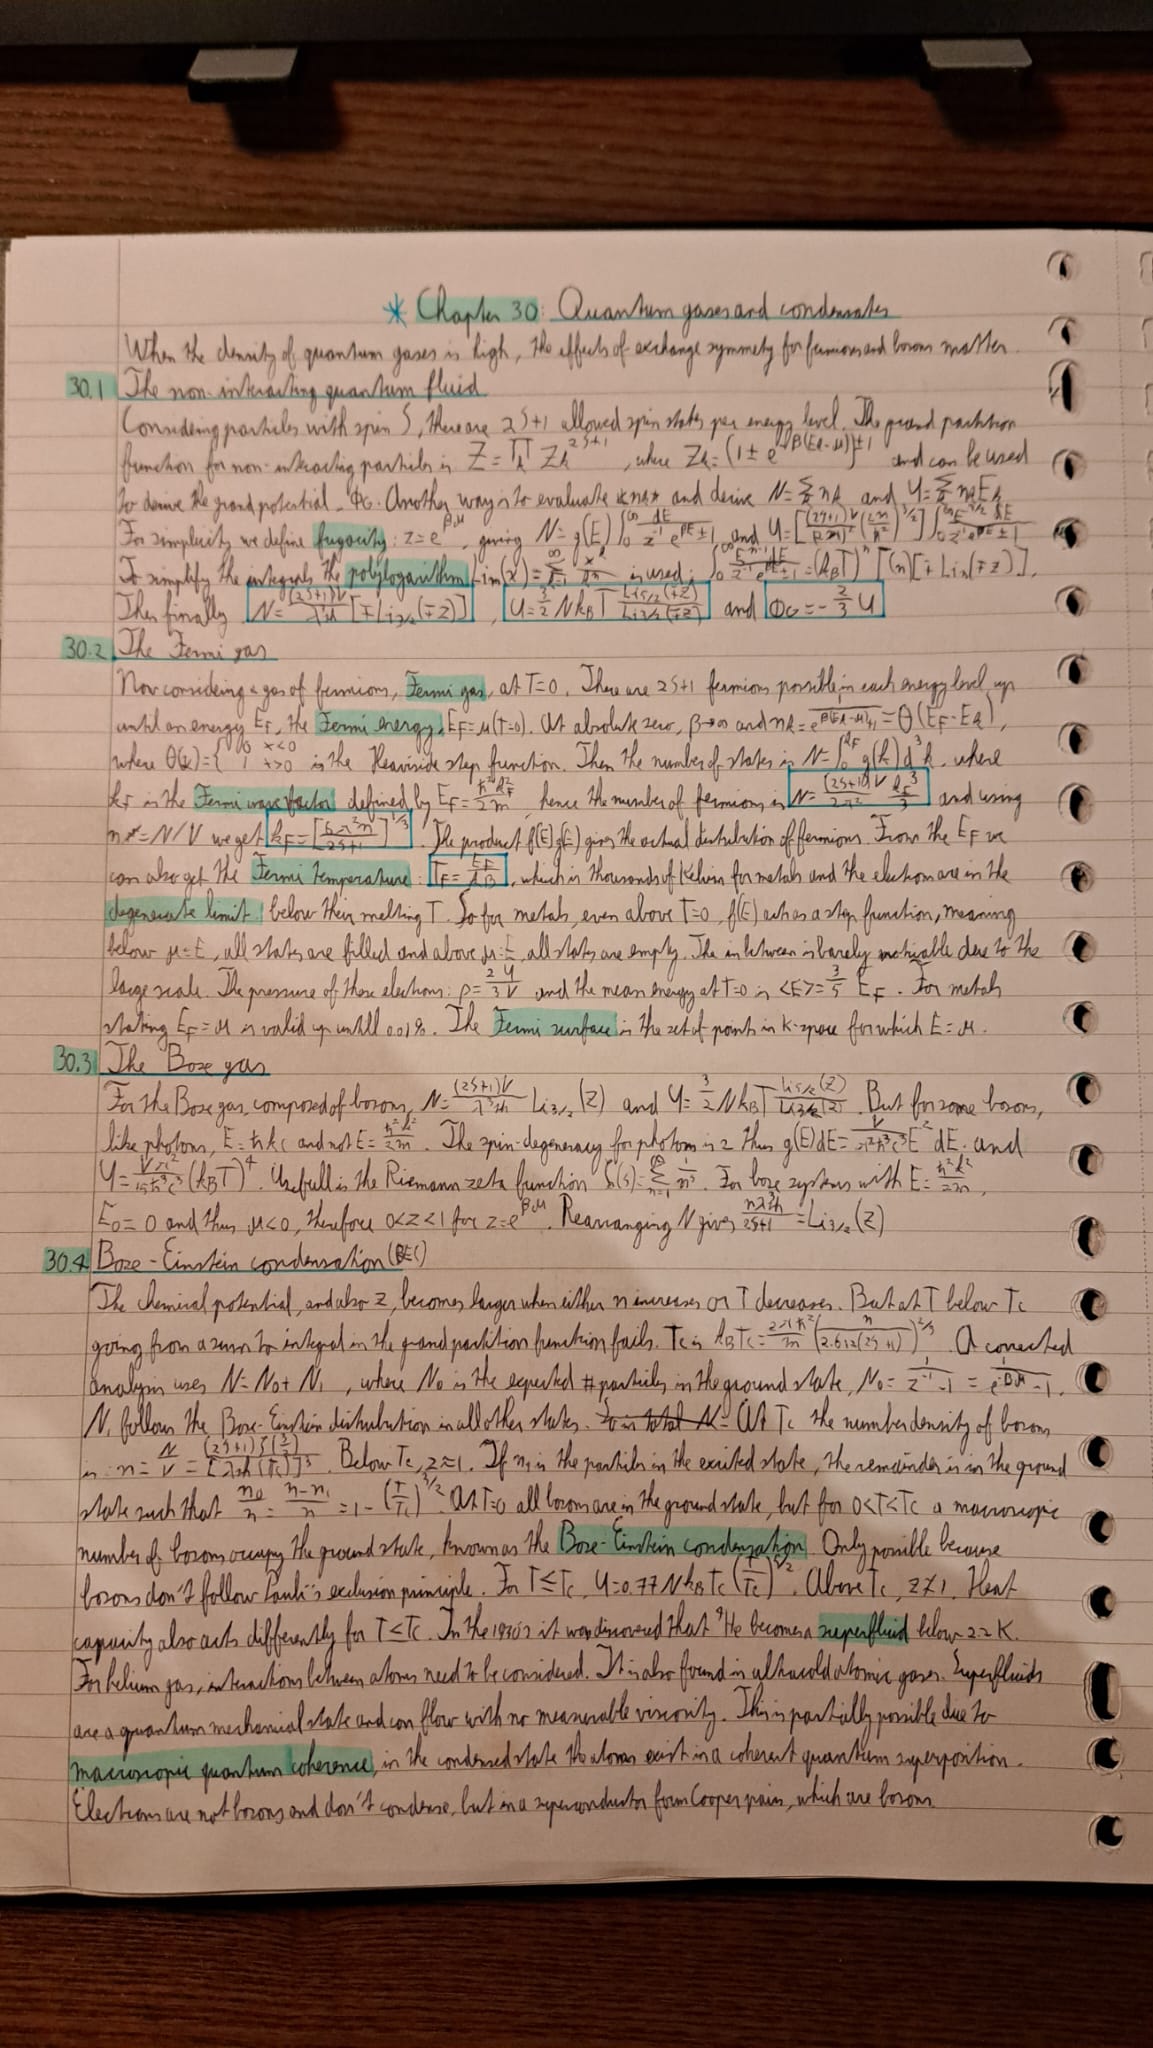 * Chapter 30: Quantum gases and condensates
When the density of quantum gases is high, the effects of exchange symmetry for fermions and bosons matter.
30.1 The non-interacting quantum fluid
Considering particles with spin S, there are 2S+1 allowed spin states per energy level. The grand partition
function for non-interacting particles is Z = Π_k Z_k^(2S+1), where Z_k = (1 ± e^(-β(E_k-μ)))^±1 and can be used
to derive the grand potential Φ_G. Another way is to evaluate n_k and derive N = Σ_k n_k and U = Σ_k n_k E_k
For simplicity we define fugacity: z = e^(βμ), giving N = g(E) ∫_0^∞ dE / (z^-1 e^(βE) ± 1) and U = [(2S+1)V / (2π)^2 (2m/ħ^2)^(3/2)] ∫_0^∞ E^(3/2) dE / (z^-1 e^(βE) ± 1)
To simplify the integrals the polylogarithm Li_n(x) = Σ x^k / k^n is used: ∫_0^∞ E^(n-1) dE / (z^-1 e^(βE) ± 1) = (k_B T)^n Γ(n)[∓ Li_n(∓z)].
Then finally N = (2S+1)V / λ_th^3 [∓ Li_3/2(∓z)], U = 3/2 N k_B T Li_5/2(∓z) / Li_3/2(∓z) and Φ_G = -2/3 U
30.2 The Fermi gas
Now considering a gas of fermions, Fermi gas, at T=0. There are 2S+1 fermions possible in each energy level up
until an energy E_F, the Fermi energy, E_F = μ(T=0). At absolute zero, β→∞ and n_k = 1 / (e^(β(E_k-μ)) + 1) = θ(E_F - E_k),
where θ(x) = { 0 x<0 1 x>0 is the Heaviside step function. Then the number of states is N = ∫_0^k_F g(k) d^3k, where
k_F is the Fermi wavefactor defined by E_F = ħ^2 k_F^2 / 2m, hence the number of fermions is N = (2S+1)V / 2π^2 k_F^3 / 3 and using
n = N/V we get k_F = [6π^2 n / 2S+1]^(1/3). The product f(E)g(E) gives the actual distribution of fermions. From the E_F we
can also get the Fermi temperature: T_F = E_F / k_B, which is thousands of Kelvin for metals and the electrons are in the
degenerate limit below their melting T. So for metals, even above T=0, f(E) acts as a step function, meaning
below μ=E, all states are filled and above μ=E all states are empty. The in between is barely noticable due to the
large scale. The pressure of these electrons: p = 2/3 U/V and the mean energy at T=0 is <E> = 3/5 E_F. For metals
stating E_F = μ is valid up untill 0.01%. The Fermi surface is the set of points in k-space for which E = μ.
30.3 The Bose gas
For the Bose gas, composed of bosons, N = (2S+1)V / λ_th^3 Li_3/2(z) and U = 3/2 N k_B T Li_5/2(z) / Li_3/2(z). But for some bosons,
like photons, E = ħkc and not E = ħ^2 k^2 / 2m. The spin-degeneracy for photons is 2 thus g(E)dE = V / π^2 ħ^3 c^3 E^2 dE and
U = Vπ^2 / 15ħ^3 c^3 (k_B T)^4. Usefull is the Riemann zeta function ζ(s) = Σ_(n=1)^∞ 1/n^s. For bose systems with E = ħ^2 k^2 / 2m,
E_0 = 0 and thus μ<0, therefore 0<z<1 for z = e^(βμ). Rearranging N gives nλ_th^3 / 2S+1 = Li_3/2(z)
30.4 Bose-Einstein condensation (BEC)
The chemical potential, and also z, becomes larger when either n increases or T decreases. But at T below T_c
going from a sum to integral in the grand partition function fails. T_c is k_B T_c = 2πħ^2 / m (n / 2.612(2S+1))^(2/3). A corrected
analysis uses N = N_0 + N_1, where N_0 is the expected # particles in the ground state, N_0 = 1 / (z^-1 - 1) = 1 / (e^(-βμ) - 1).
N_1 follows the Bose-Einstein distribution in all other states. So in total N = At T_c the number density of bosons
is: n = N/V = (2S+1) ζ(3/2) / [λ_th(T_c)]^3. Below T_c, z≈1. If n_1 is the particles in the excited state, the remainder is in the ground
state such that n_0/n = (n-n_1)/n = 1 - (T/T_c)^(3/2). At T=0 all bosons are in the ground state, but for 0<T<T_c a macroscopic
number of bosons occupy the ground state, known as the Bose-Einstein condensation. Only possible because
bosons don't follow Pauli's exclusion principle. For T≤T_c, U = 0.77 N k_B T_c (T/T_c)^(5/2). Above T_c, z≠1. Heat
capacity also acts differently for T≤T_c. In the 1930's it was discovered that ^4He becomes a superfluid below 2.2 K.
For helium gas, interactions between atoms need to be considered. It is also found in ultracold atomic gases. Superfluids
are a quantum mechanical state and can flow with no measurable viscosity. This is partially possible due to
macroscopic quantum coherence, in the condensed state the atoms exist in a coherent quantum superposition.
Electrons are not bosons and don't condense, but in a superconductor form Cooper pairs, which are bosons